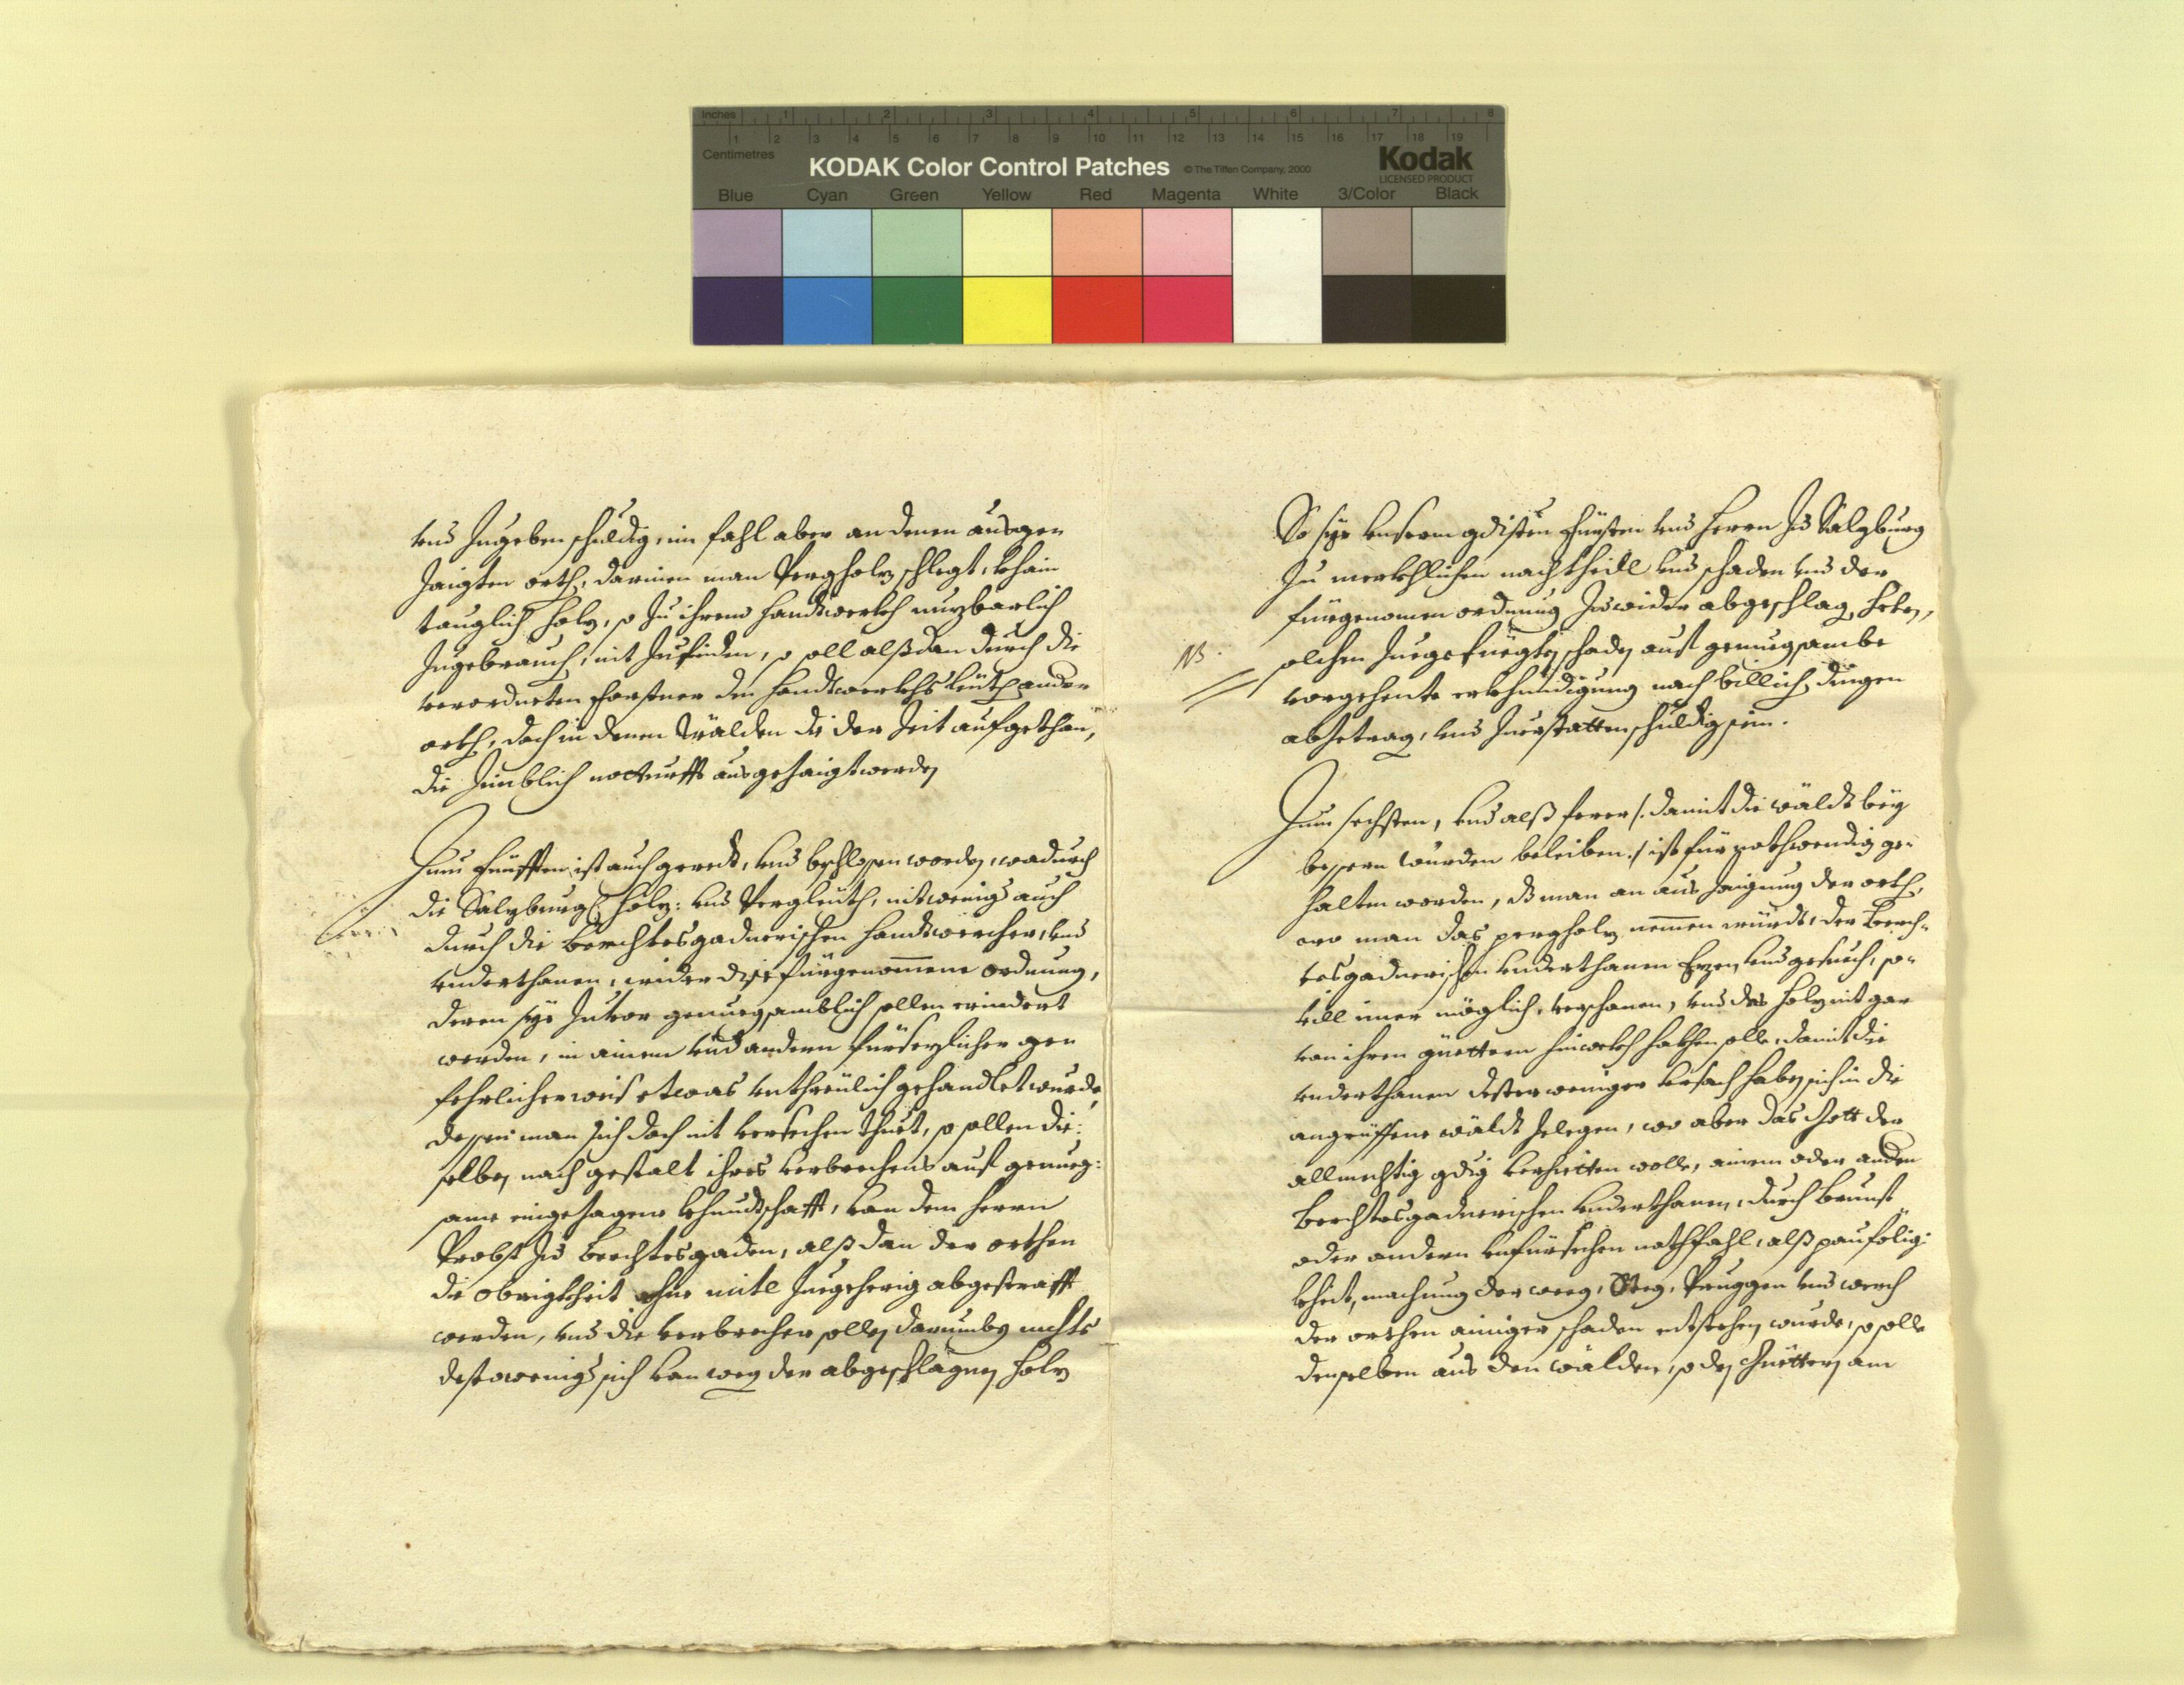 Inches 1 2 3 4 5 6 7 8
1 2 3 4 5 6 7 8 9 10 11 12 13 14 15 16 17 18 19
Centimetres
KODAK Color Control Patches © The Tiffen Company, 2000 Kodak
LICENSED PRODUCT
Blue Cyan Green Yellow Red Magenta White 3/Color Black
vnd Zugeben schuldig, im fahl aber an denen ausge⸗
zaigten orth, darinen man Pergholz schlegt, khain
tauglich holz, so zu ihrem handtwerkh nuzbarlich
Zugebrauch, nit Zufinden, so soll alßdan durch die
verordneten Forstner den handtwerkhs leüth ander
orth, doch in denen Wälden die der Zeit aufgethan,
die Zimblich notturfft ausgezaigt werden
Zum Fünfften ist auch geredt, vnd beschlossen worden, wadurch
die Salzburg: holz: vnd Pergleüth, nit wenig auch
durch die Berchtesgadnerischen handtwercher, vnd
vnderthanen, wider dise fürgenommene ordnung,
deren sye Zuuor genuegsamblich sollen erindert
werden, in ainem vnd andern fürsezlicher ge⸗
fehrlicher weis etwas vnthreülich gehandlet wurde,
dessen man sich doch nit versechen thuet, so sollen die⸗
selben nach gestalt ihres verbrechens auf genueg⸗
same eingezogene khundtschafft, von dem herrn
Probst zu Berchtesgaden, alß dan der orthen
die obrigkheit ohne mitl Zuegehörig abgestrafft
werden, vnd die verbrecher sollen darumben nichts
destoweniger sich von weg der abgeschlagnen holz
So sye vnserm gdisten Fürsten vnd herrn zu Salzburg
Zu merkhlichen nachtheill vnd schaden vnd der
fürgenomen ordnung Zuwider abgeschlag. heten,
NB. solchen Zuegefüegten schaden auf genuegsambe
vorgehente erkhundigung nach billichen dingen
abzetragen, vnd Zuerstatten schuldig sein.
Zum sechsten, vnd alß ferer /: damit die wäldt bey
bessern würden beleiben :/ ist für nothwendig ge⸗
halten worden, dß man an aus Zaigung der orth,
wo man das pergholz nemen würdt, der Berch⸗
tesgadnerischen vnderthanen Ezen, vnd gesuech, so⸗
vill imer möglich, verschonen, vnd das holz nit gar
von ihren güettern hinwekh hakhen solle, damit die
vnderthanen dester weniger vrsach haben sich in die
angriffene wäldt Zelegen, wo aber das Gott der
allmechtig gdig verhietten wolle, ainem oder anden
Berchtesgadnerischen vnderthanen, durch Brunst
oder andern vnfürsechen nothfahl, alß paufölig⸗
kheit, machung der weeg, Steg, Pruggen vnd werch
der orthen ainiger schaden entstehen wurde, so solle
denselben aus den wälden, so den Güettern am